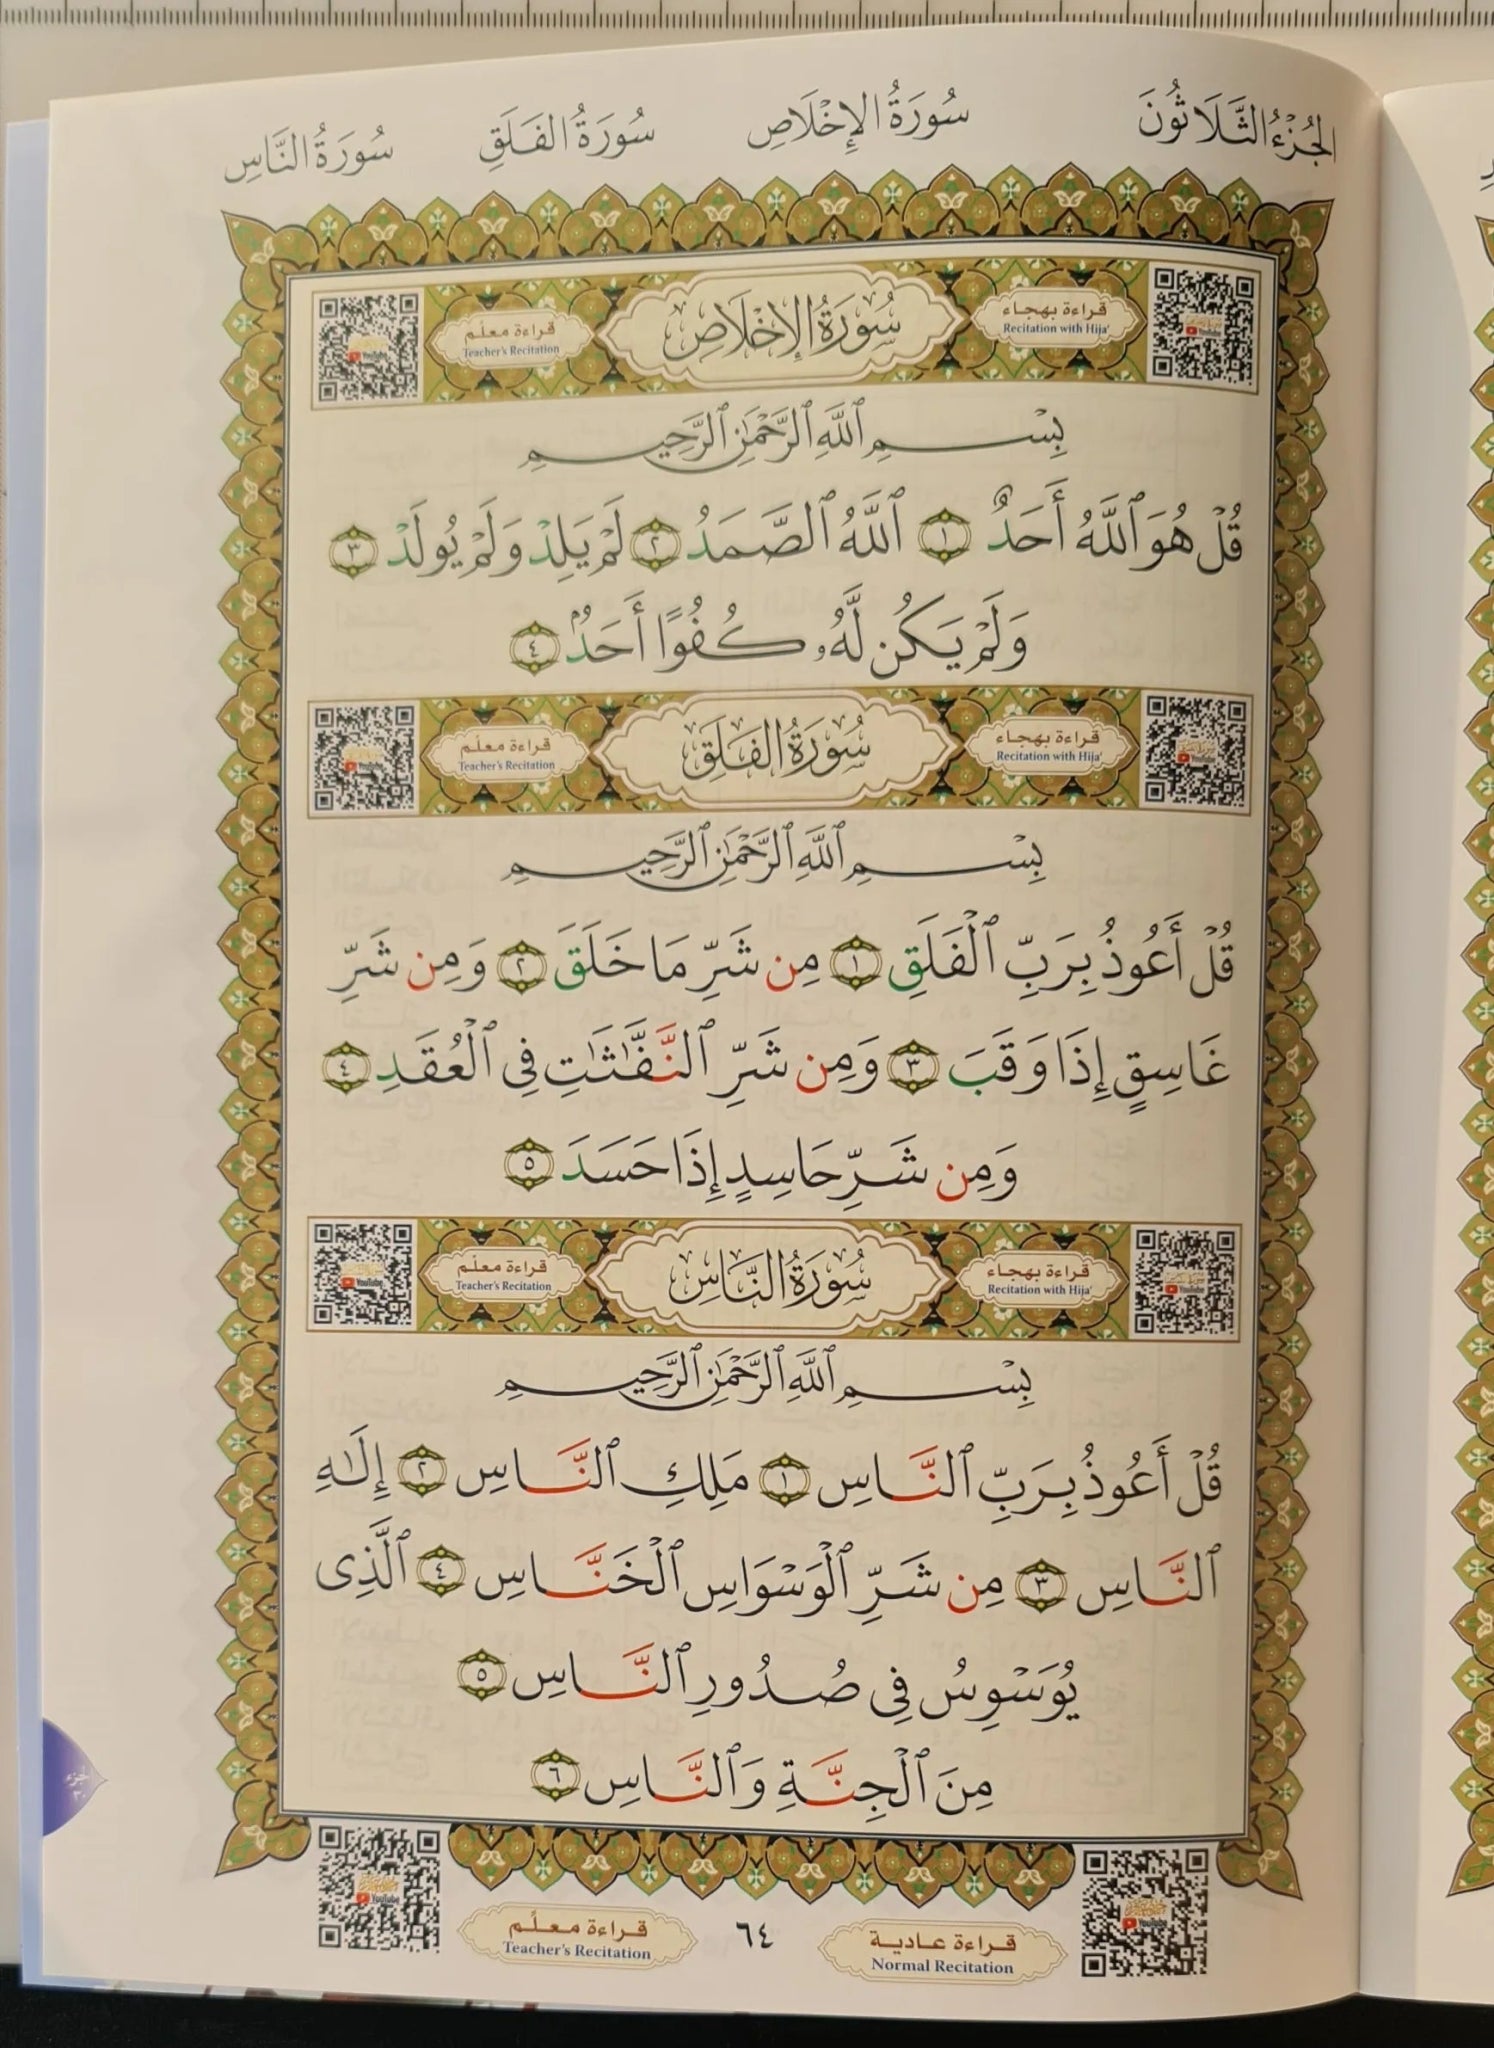 الجُزْءُ الثَّلَاثُونَ سُورَةُ الإِخْلَاصِ سُورَةُ الفَلَقِ سُورَةُ النَّاسِ
قراءة بهجاء
Recitation with Hija'
سُورَةُ الإِخْلَاصِ
قراءة معلّم
Teacher's Recitation
YouTube
YouTube
بِسْمِ ٱللَّهِ ٱلرَّحْمَٰنِ ٱلرَّحِيمِ
قُلْ هُوَ ٱللَّهُ أَحَدٌ ١ ٱللَّهُ ٱلصَّمَدُ ٢ لَمْ يَلِدْ وَلَمْ يُولَدْ ٣
وَلَمْ يَكُن لَّهُۥ كُفُوًا أَحَدٌۢ ٤
قراءة بهجاء
Recitation with Hija'
سُورَةُ الفَلَقِ
قراءة معلّم
Teacher's Recitation
YouTube
YouTube
بِسْمِ ٱللَّهِ ٱلرَّحْمَٰنِ ٱلرَّحِيمِ
قُلْ أَعُوذُ بِرَبِّ ٱلْفَلَقِ ١ مِن شَرِّ مَا خَلَقَ ٢ وَمِن شَرِّ
غَاسِقٍ إِذَا وَقَبَ ٣ وَمِن شَرِّ ٱلنَّفَّٰثَٰتِ فِى ٱلْعُقَدِ ٤
وَمِن شَرِّ حَاسِدٍ إِذَا حَسَدَ ٥
قراءة بهجاء
Recitation with Hija'
سُورَةُ النَّاسِ
قراءة معلّم
Teacher's Recitation
YouTube
YouTube
بِسْمِ ٱللَّهِ ٱلرَّحْمَٰنِ ٱلرَّحِيمِ
قُلْ أَعُوذُ بِرَبِّ ٱلنَّاسِ ١ مَلِكِ ٱلنَّاسِ ٢ إِلَٰهِ
ٱلنَّاسِ ٣ مِن شَرِّ ٱلْوَسْوَاسِ ٱلْخَنَّاسِ ٤ ٱلَّذِى
يُوَسْوِسُ فِى صُدُورِ ٱلنَّاسِ ٥
مِنَ ٱلْجِنَّةِ وَٱلنَّاسِ ٦
الجزء
٣٠
YouTube
قراءة عادية
Normal Recitation
٦٤
قراءة معلّم
Teacher's Recitation
YouTube